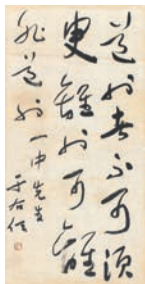 道也者不可須
臾離也可離
非道也 一中先生
于右任